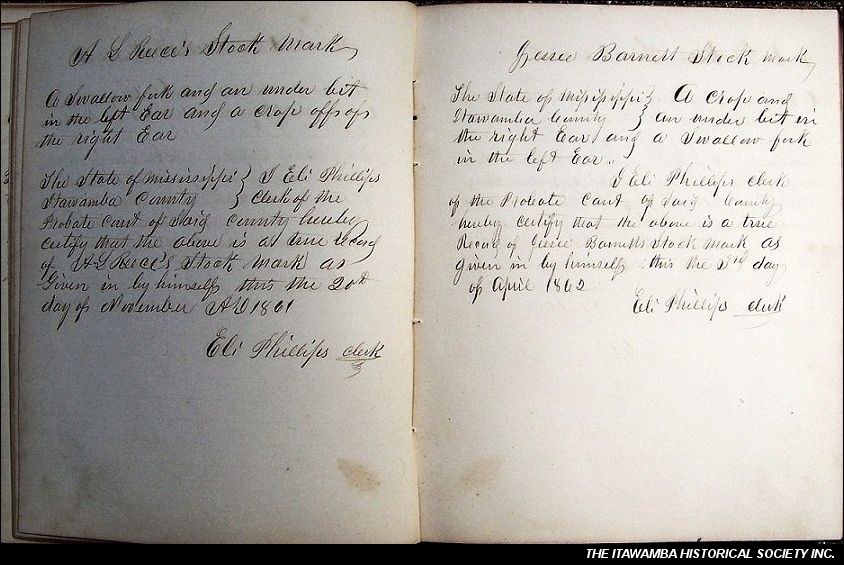 A S Reece's Stock Mark
A Swallow fork and an under bit
in the left Ear and a crop off of
the right Ear
The State of Mississippi } I Eli Phillips
Itawamba County } Clerk of the
Probate Court of Said County hereby
certify that the above is a true record
of A S Reece's Stock Mark as
Given in by himself this the 20th
day of November AD 1861
Eli Phillips clerk
Jessee Barnett Stock Mark
The State of Mississippi } A Crop and
Itawamba County } an under bit in
the right Ear and a Swallow fork
in the left Ear.
I Eli Phillips clerk
of the Probate Court of Said County
hereby certify that the above is a true
Record of Jessee Barnetts Stock Mark as
given in by himself this the 3rd day
of April 1862
Eli Phillips clerk
THE ITAWAMBA HISTORICAL SOCIETY INC.